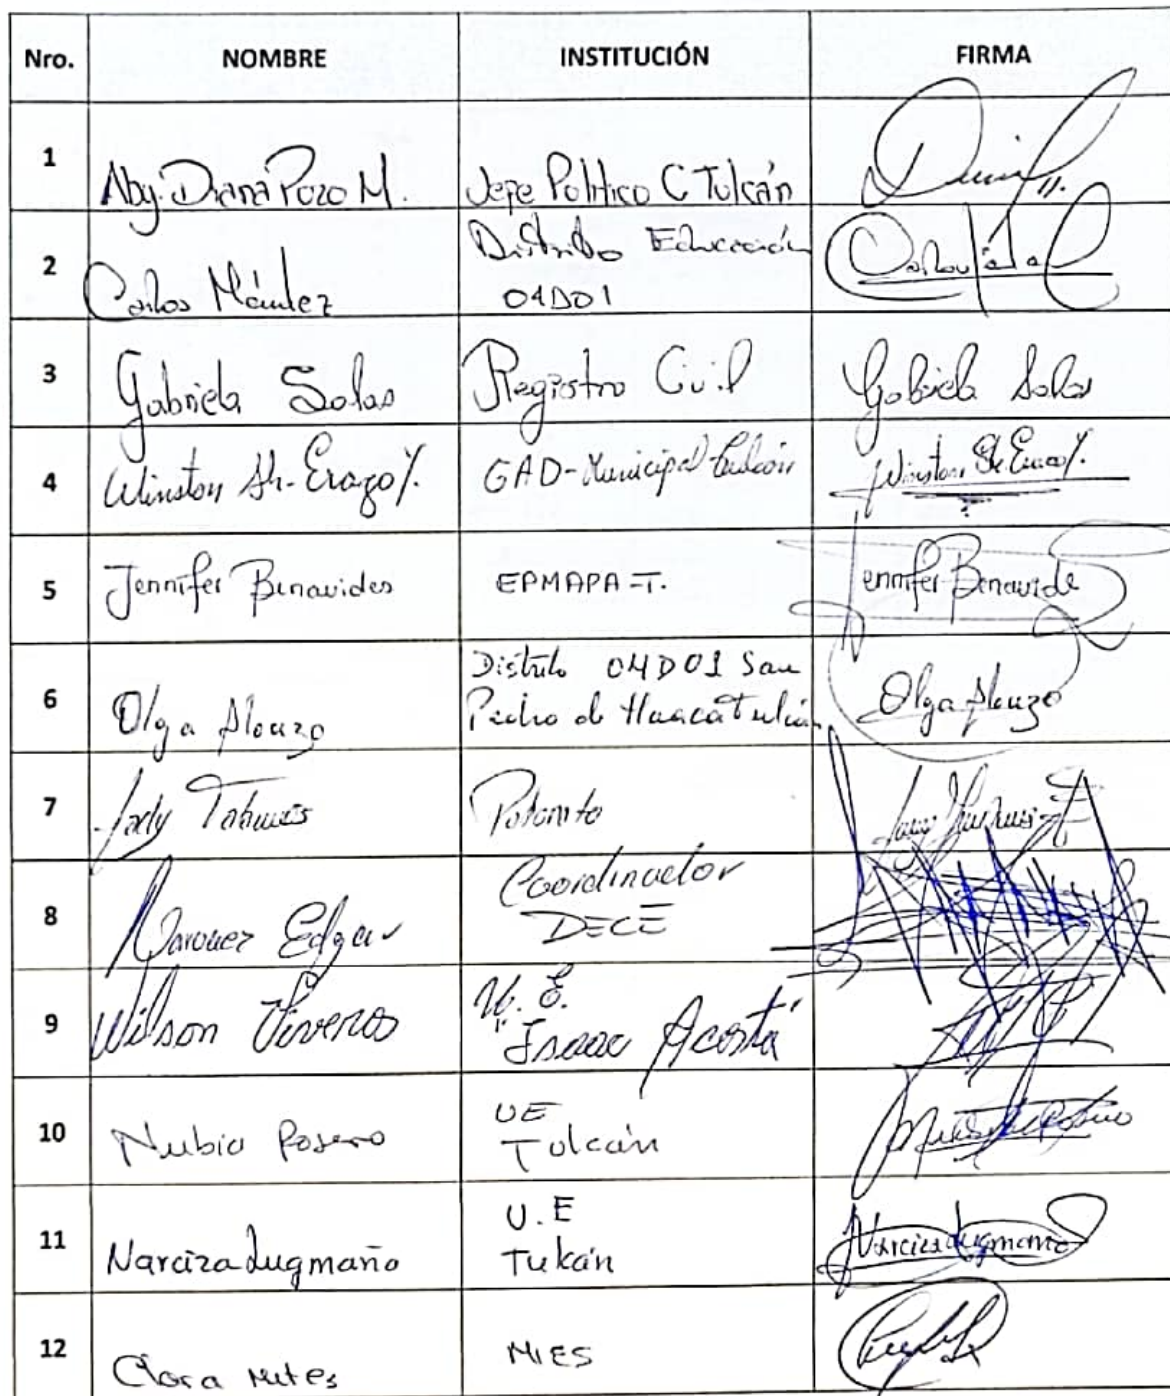 Nro. NOMBRE INSTITUCIÓN FIRMA
1 Abg. Diana Pozo M. Jefe Político C Tulcán
2 Carlos Méndez Distrito Educación
04D01
3 Gabriela Salas Registro Civil Gabriela Salas
4 Winston Erazo Y. GAD-Municipal Tulcán Winston Erazo Y.
5 Jennifer Benavides EPMAPA-T. Jennifer Benavides
6 Olga Alonzo Distrito 04D01 San
Pedro de Huaca Tulcán Olga Alonzo
7
8 Edgar Coordinador
DECE
9 Wilson Viveros U. E.
"Isaac Acosta"
10 Nubia Rosero UE
Tulcán
11 Narciza Lugmaño U.E
Tulcán Narciza Lugmaño
12 Clara MIES